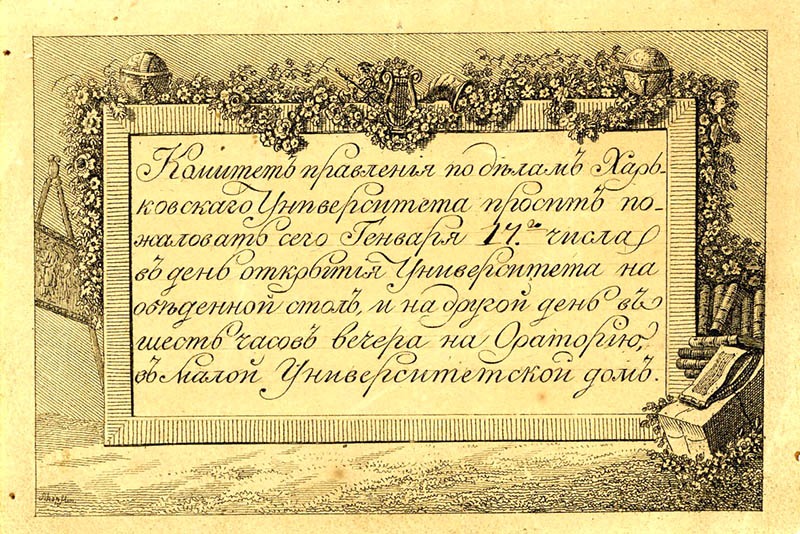 Комитетъ правленья по дѣламъ Харь-
ковскаго Университета проситъ по-
жаловать сего Генваря 17.го числа
въ день открытія Университета на
обѣденной столъ, и на другой день въ
шесть часовъ вечера на Ораторію,
въ малой Университетской домъ.